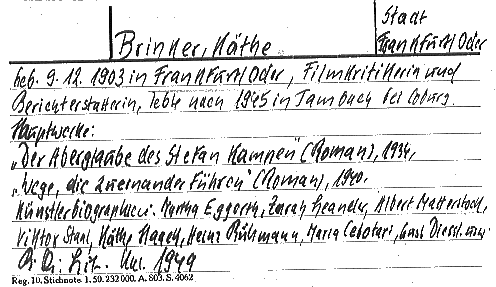 Stadt
Brinker, Käthe
Frankfurt Oder
Geb. 9. 12. 1903 in Frankfurt Oder, Filmkritikerin und
Berichterstatterin, lebte nach 1945 in Jambach bei Coburg.
Hauptwerke:
„Der Aberglaube des Stefan Kampen" (Roman), 1934,
„Wege, die zueinander führen" (Roman), 1940.
Künstlerbiographien: Martha Eggerth, Zarah Leander, Albert Matterstock,
Viktor Staal, Käthe Haack, Heinz Rühmann, Maria Cebotari, Gust. Diessl. usw.
Lit. 1949
Reg. 10. Stichnote 1. 50. 232 000. A. 803. S. 4062